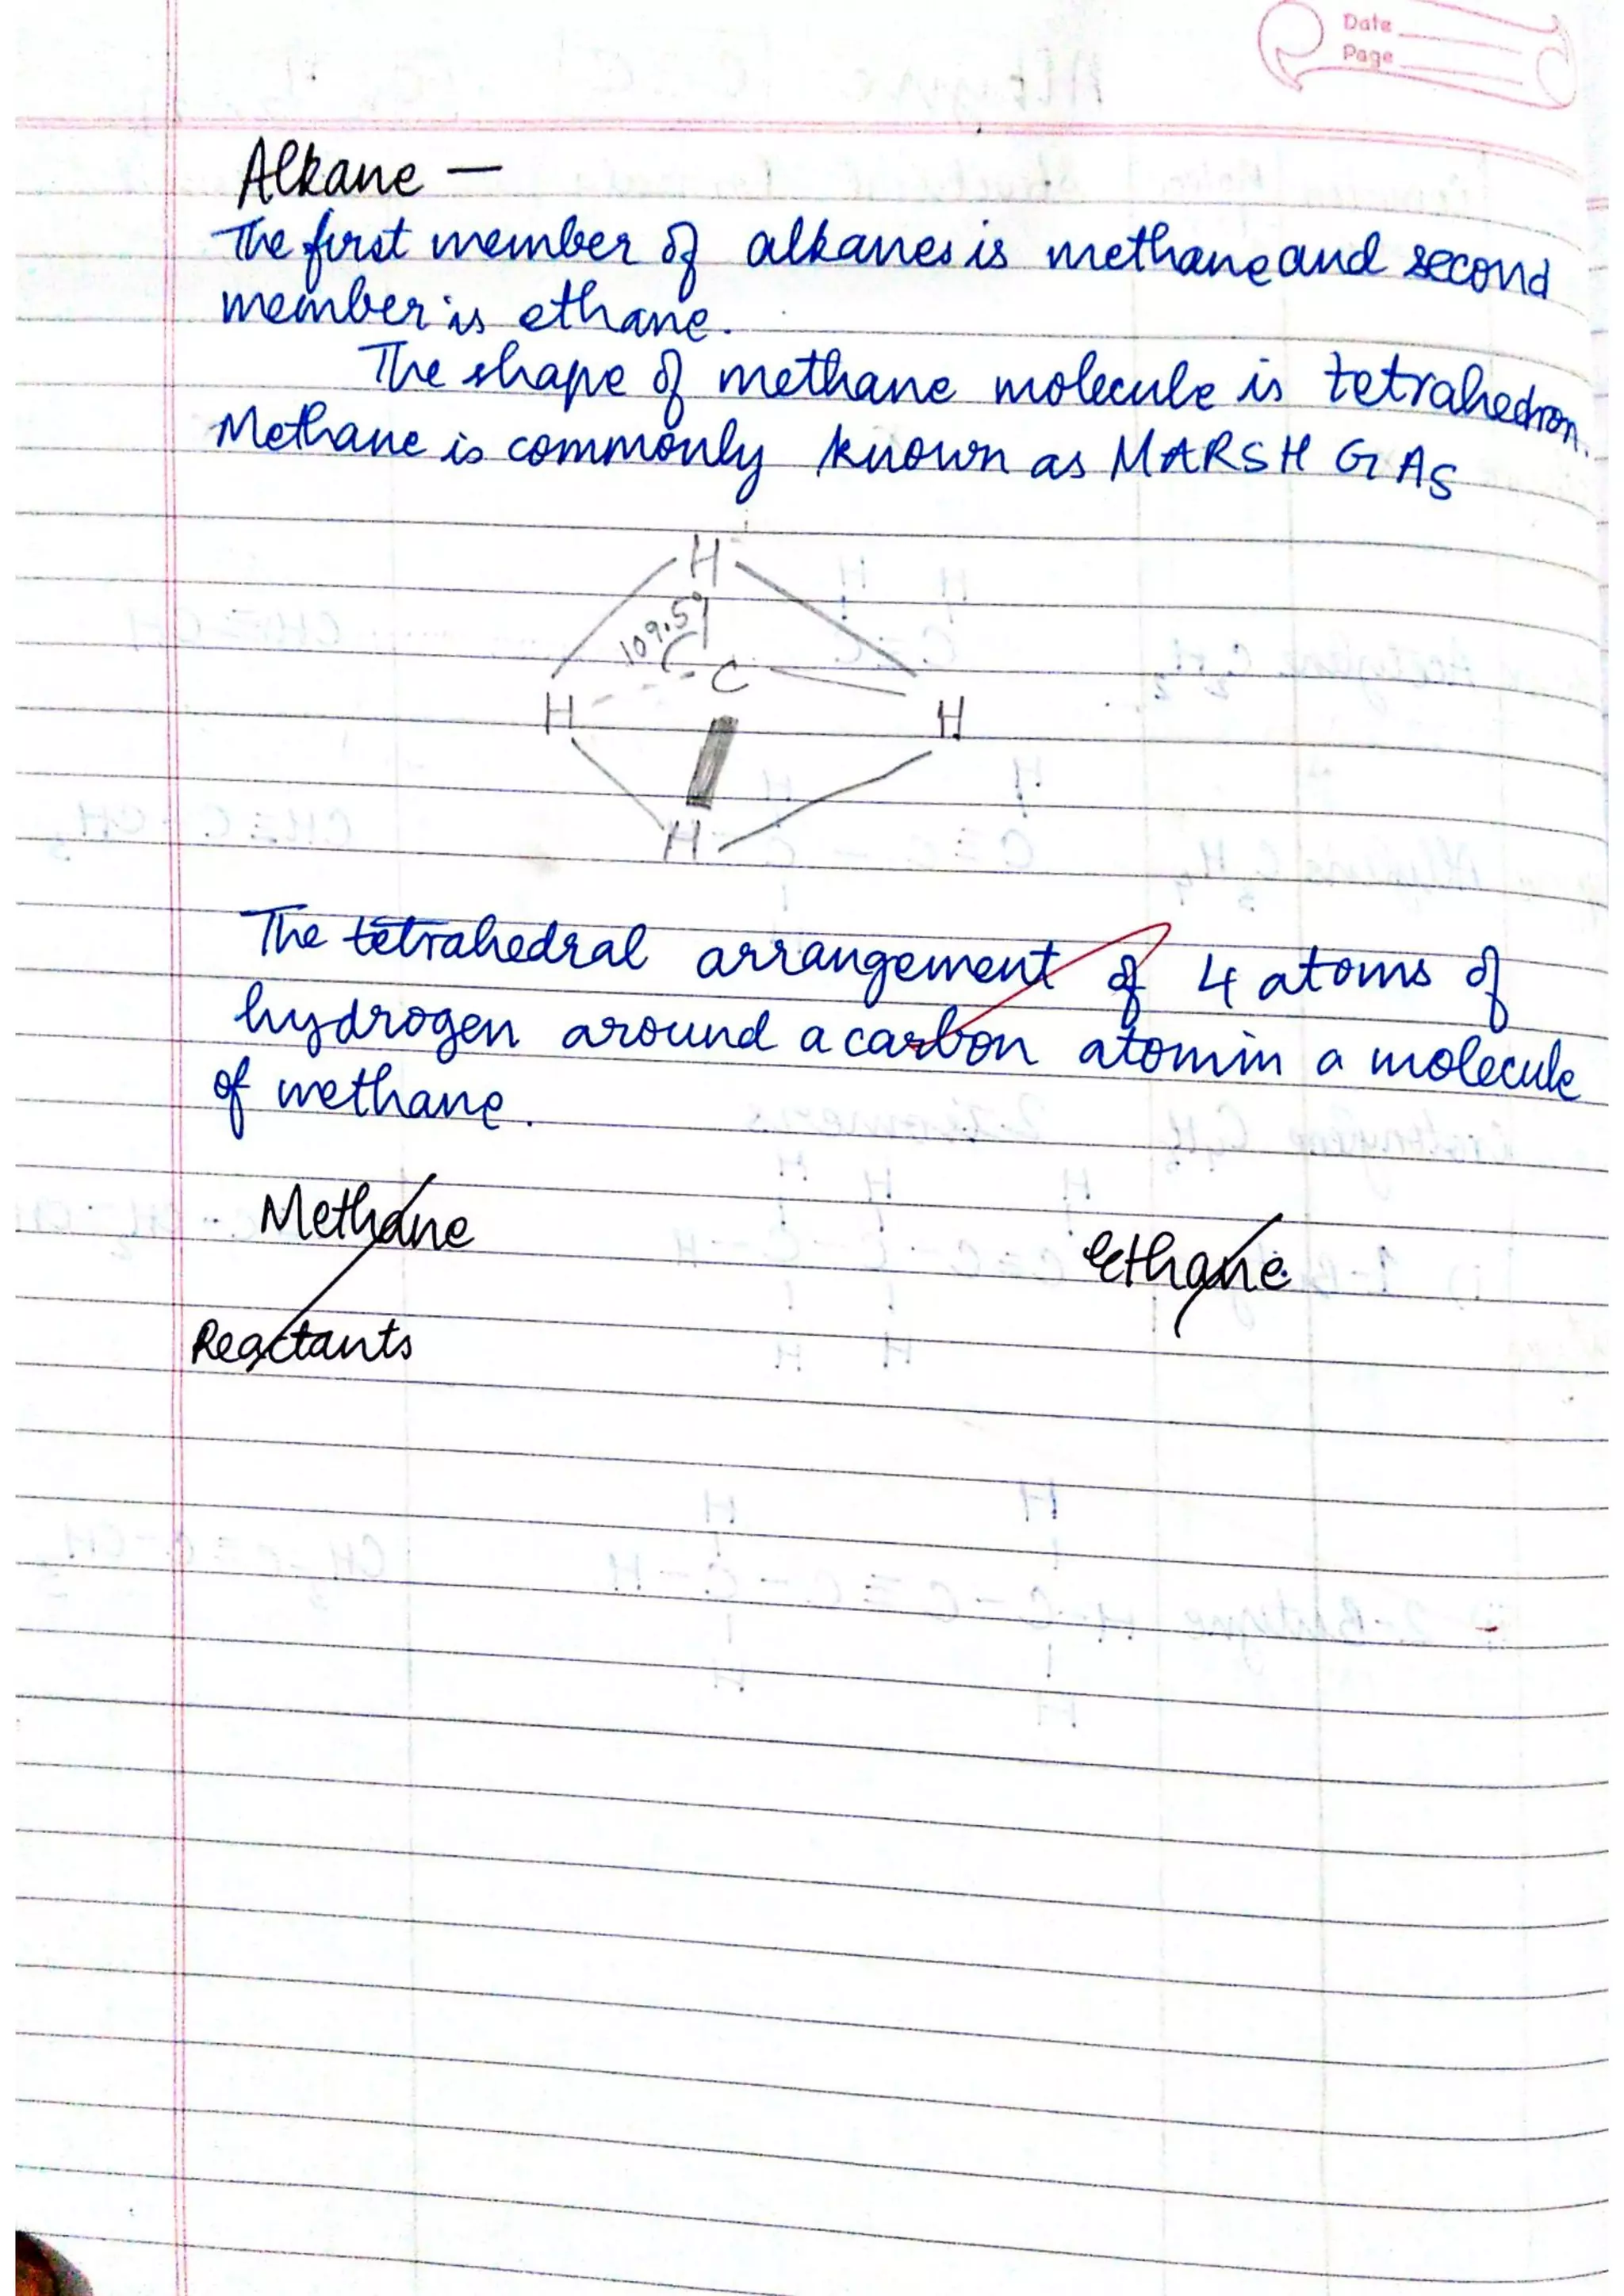 Date
Page
Alkane —
The first member of alkanes is methane and second
member is ethane.
The shape of methane molecule is tetrahedron.
Methane is commonly known as MARSH GAS
H
109.5°
C
H H
H
The tetrahedral arrangement of 4 atoms of
hydrogen around a carbon atom in a molecule
of methane.
Methane Ethane
Reactants